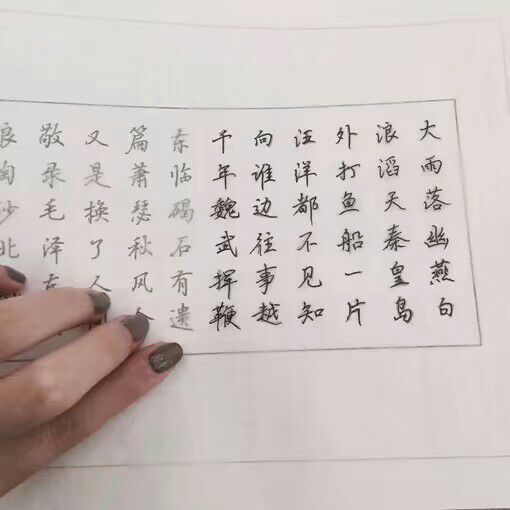 大雨落幽燕白
浪滔天秦皇岛
外打鱼船一片
汪洋都不见知
向谁边往事越
千年魏武挥鞭
东临碣石有遗
篇萧瑟秋风今
又是换了人
敬录毛泽东
浪淘沙北